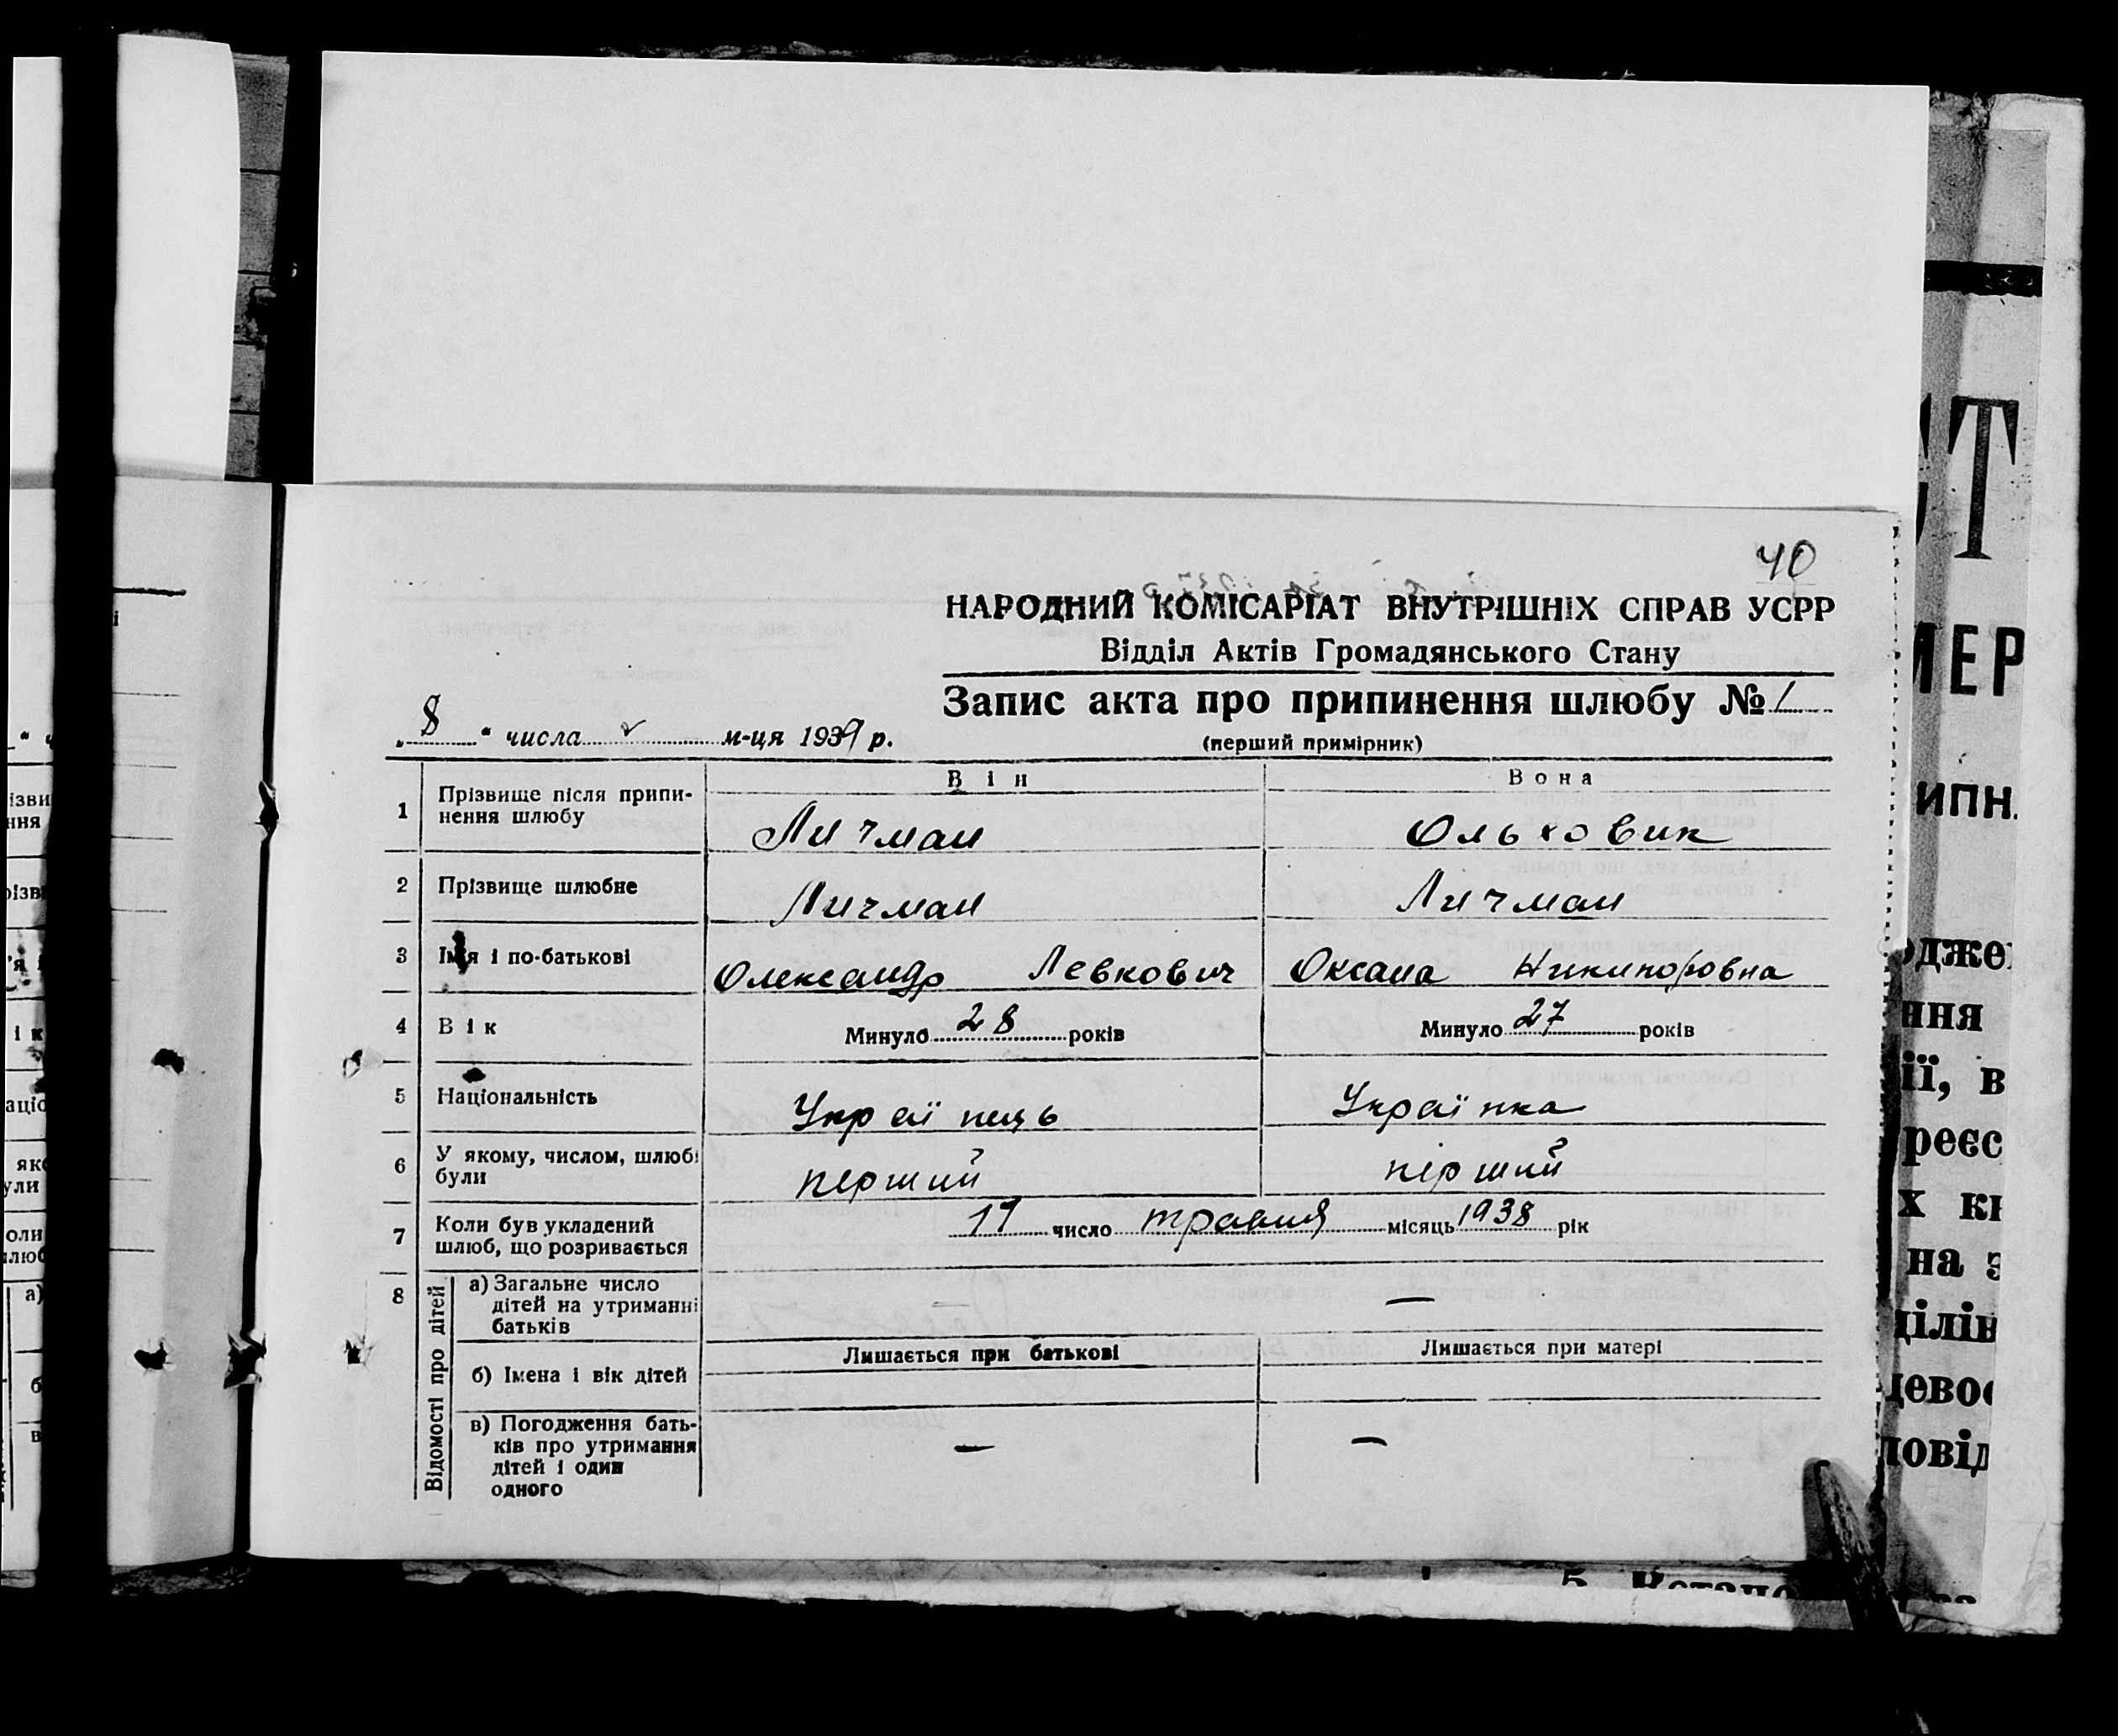 40
НАРОДНИЙ КОМІСАРІАТ ВНУТРІШНІХ СПРАВ УСРР
Відділ Актів Громадянського Стану
Запис акта про припинення шлюбу № 1
(перший примірник)
„ 8 “ числа м-ця 1939 р.
Він Вона
1 Прізвище після припи-
нення шлюбу Личман Ольховик
2 Прізвище шлюбне Личман Личман
3 Ім'я і по-батькові Олександр Левкович Оксана Никипоровна
4 Вік Минуло 28 років Минуло 27 років
5 Національність Українець Українка
6 У якому, числом, шлюбі
були перший перший
7 Коли був укладений
шлюб, що розривається 19 число травня місяць 1938 рік
8 Відомості про дітей
а) Загальне число
дітей на утриманні
батьків — —
Лишається при батькові Лишається при матері
б) Імена і вік дітей
в) Погодження бать-
ків про утримання
дітей і один
одного — —
СТ
МЕР
ИПН.
одже
ння
ії, в
реєс
х кн
на з
ділів
цевос
повід